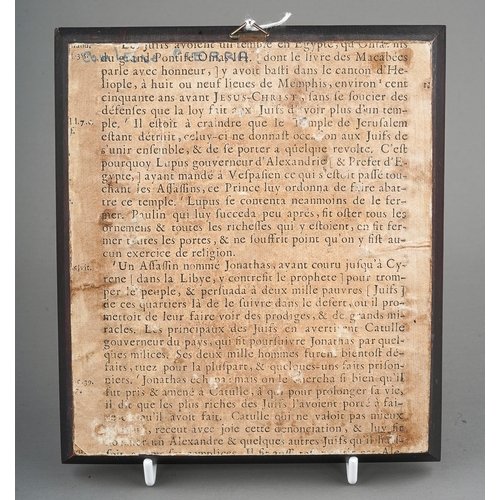 Les Juifs avoient un temple en Egypte, qu'Onias fils
du grande Pontife Onias, dont le livre des Macabées
parle avec honneur, [y avoit basti dans le canton d'He-
liople, à huit ou neuf lieues de Memphis, environ cent
cinquante ans avant JESUS-CHRIST, sans se soucier des
défenses que la loy fait aux Juifs de voir plus d'un tem-
ple. Il estoit à craindre que le Temple de Jerusalem
estant détruit, celuy-ci ne donnast occasion aux Juifs de
s'unir ensemble, & de se porter à quelque revolte. C'est
pourquoy Lupus gouverneur d'Alexandrie [& Prefet d'E-
gypte,] ayant mandé à Vespasien ce qui s'estoit passé tou-
chant les Assassins, ce Prince luy ordonna de faire abat-
tre ce temple. Lupus se contenta neanmoins de le fer-
mer. Paulin qui luy succeda peu aprés, fit oster tous les
ornemens & toutes les richesses qui y estoient, en fit fer-
mer toutes les portes, & ne souffrit point qu'on y fist au-
cun exercice de religion.
Un Assassin nommé Jonathas, ayant couru jusqu'à Cy-
rene [dans la Libye, y contrefit le prophete] pour trom-
per le peuple, & persuada à deux mille pauvres [Juifs]
de ces quartiers là de le suivre dans le desert, ou il pro-
mettoit de leur faire voir des prodiges, & de grands mi-
racles. Les principaux des Juifs en avertirent Catulle
gouverneur du pays, qui fit poursuivre Jonathas par quel-
ques milices. Ses deux mille hommes furent bientost dé-
faits, tuez pour la pluspart, & quelques-uns faits prison-
niers. Jonathas échapa: mais on le chercha si bien qu'il
fut pris & amené à Catulle, à qui pour prolonger sa vie,
il dit que les plus riches des Juifs l'avoient porté à fai-
re ce qu'il avoit fait. Catulle qui ne valoit pas mieux
receut avec joie cette dénonciation, & luy fit
nommer un Alexandre & quelques autres Juifs qu'il